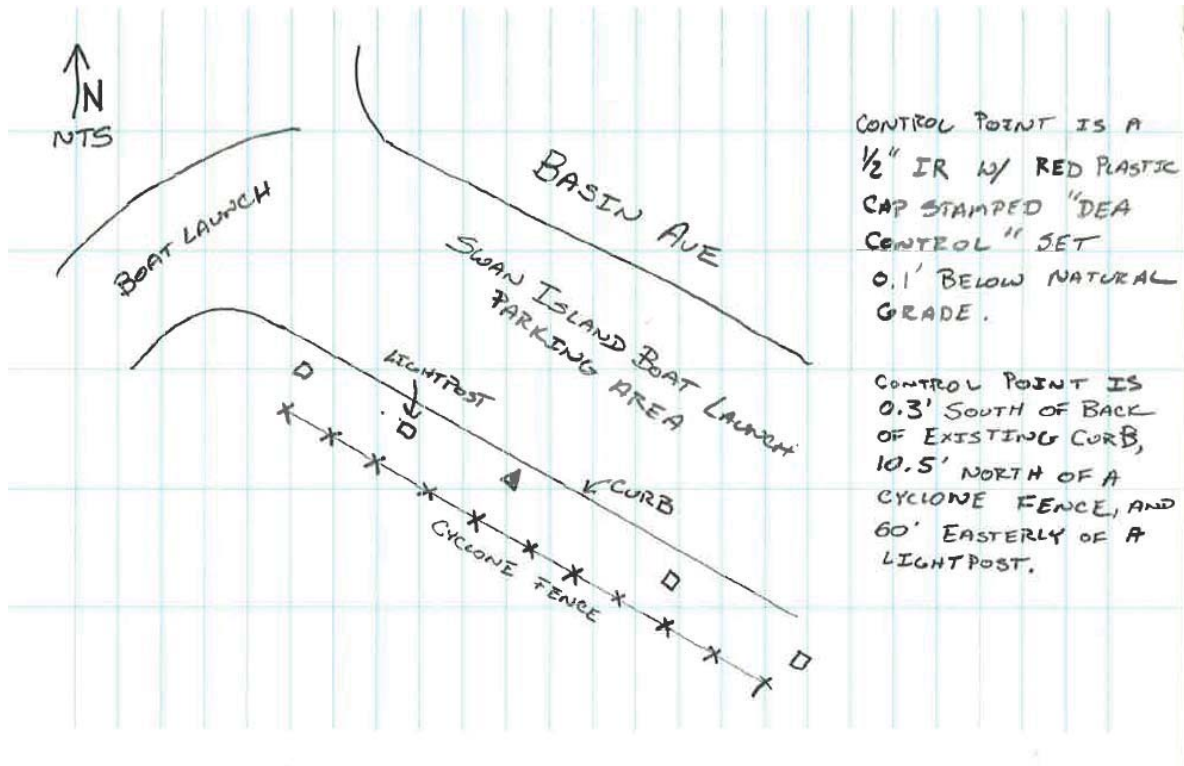 N
NTS
BOAT LAUNCH
BASIN AVE
SWAN ISLAND BOAT LAUNCH
PARKING AREA
LIGHTPOST
CURB
CYCLONE FENCE
CONTROL POINT IS A
1/2" IR W/ RED PLASTIC
CAP STAMPED "DEA
CONTROL" SET
0.1' BELOW NATURAL
GRADE.
CONTROL POINT IS
0.3' SOUTH OF BACK
OF EXISTING CURB,
10.5' NORTH OF A
CYCLONE FENCE, AND
60' EASTERLY OF A
LIGHTPOST.